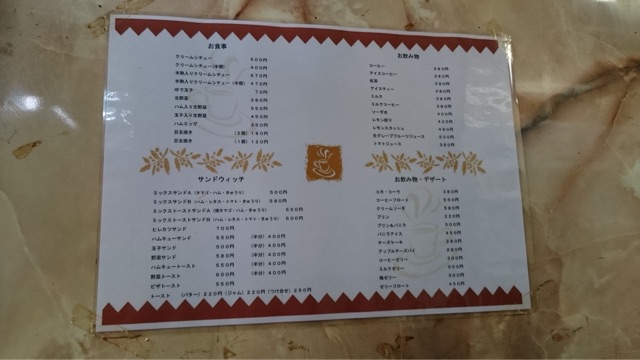 お食事
クリームシチュー 500円
クリームシチュー(半個) 400円
半熟入りクリームシチュー 570円
半熟入りクリームシチュー(半個) 470円
ゆで玉子 70円
生野菜 380円
ハム入り生野菜 550円
玉子入り生野菜 450円
ハムエッグ 350円
目玉焼き (2個) 180円
目玉焼き (1個) 120円
お飲み物
コーヒー 380円
アイスコーヒー 380円
紅茶 380円
アイスティー 380円
ミルク 380円
ミルクコーヒー 380円
ソーダ水 400円
レモン絞り 420円
レモンスカッシュ 480円
生グレープフルーツジュース 500円
トマトジュース 380円
サンドウィッチ
ミックスサンドA (タマゴ・ハム・きゅうり) 500円
ミックスサンドB (ハム・レタス・トマト・きゅうり) 580円
ミックストーストサンドA (焼タマゴ・ハム・きゅうり) 550円
ミックストーストサンドB (ハム・レタス・トマト・きゅうり) 600円
ヒレカツサンド 700円
ハムキューサンド 550円 (半分) 400円
玉子サンド 500円 (半分) 400円
野菜サンド 580円 (半分) 400円
ハムキュートースト 550円 (半分) 400円
野菜トースト 600円 (半分) 400円
ピザトースト 550円
トースト (バター) 220円 (ジャム) 220円 (つけ合せ) 250円
お飲み物・デザート
コカ・コーラ 380円
コーヒーフロート 550円
クリームソーダ 550円
プリン 320円
プリン&バニラ 500円
バニラアイス 450円
チーズケーキ
アップルチーズパイ 380円
コーヒーゼリー
ミルクゼリー
梅ゼリー
ゼリーフロート 450円